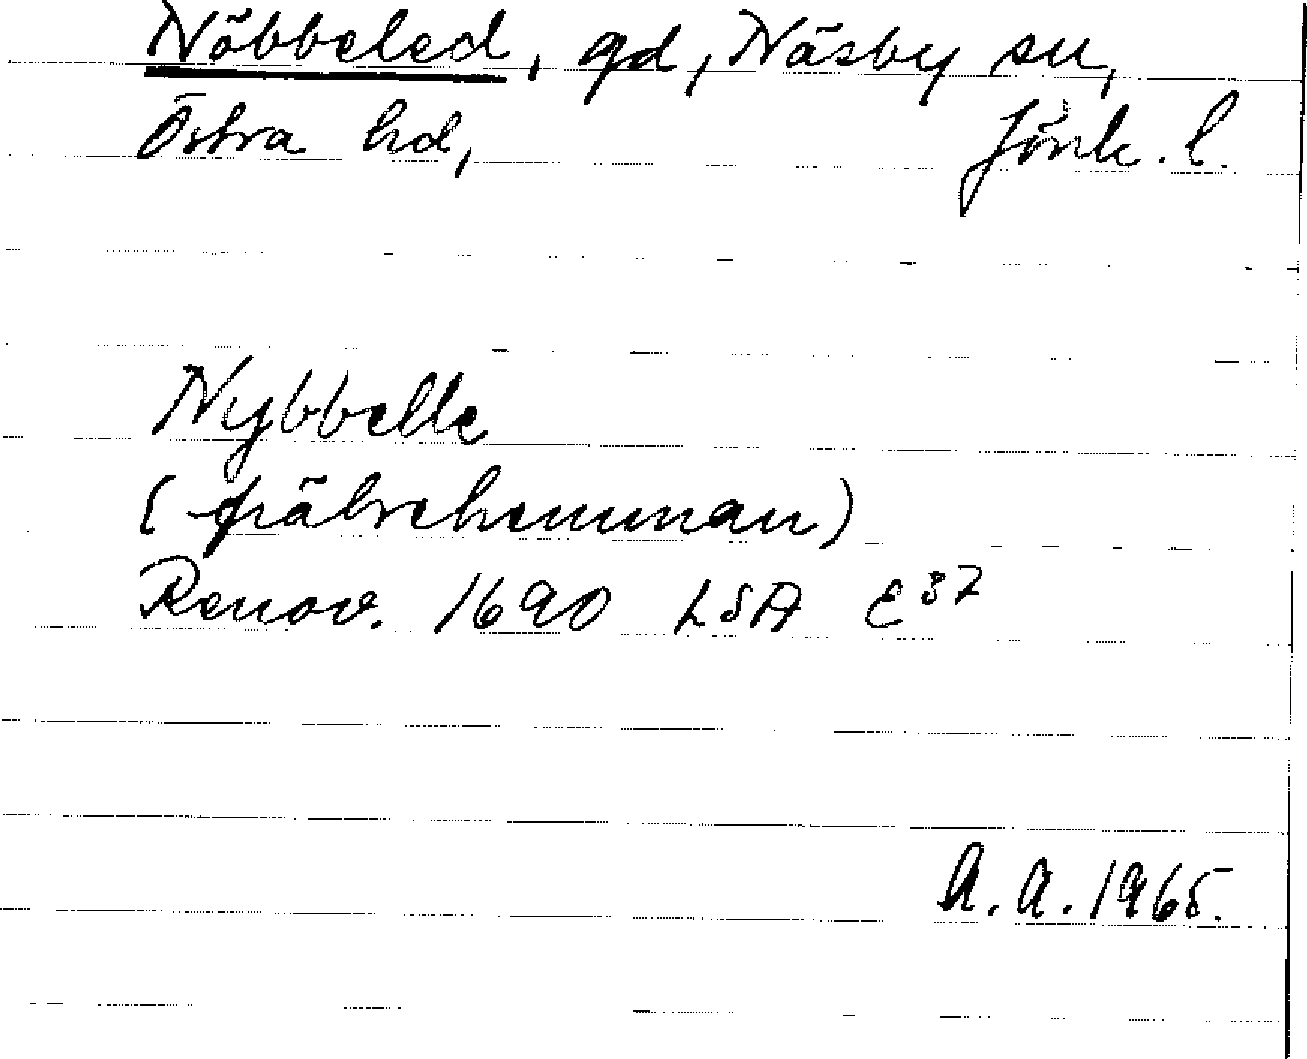 Nöbbeled, gd, Näsby sn,
Östra hd, Jönk. l.
Nybbelle
(frälsehemman)
Renov. 1690 LSA E37
A.A. 1965.